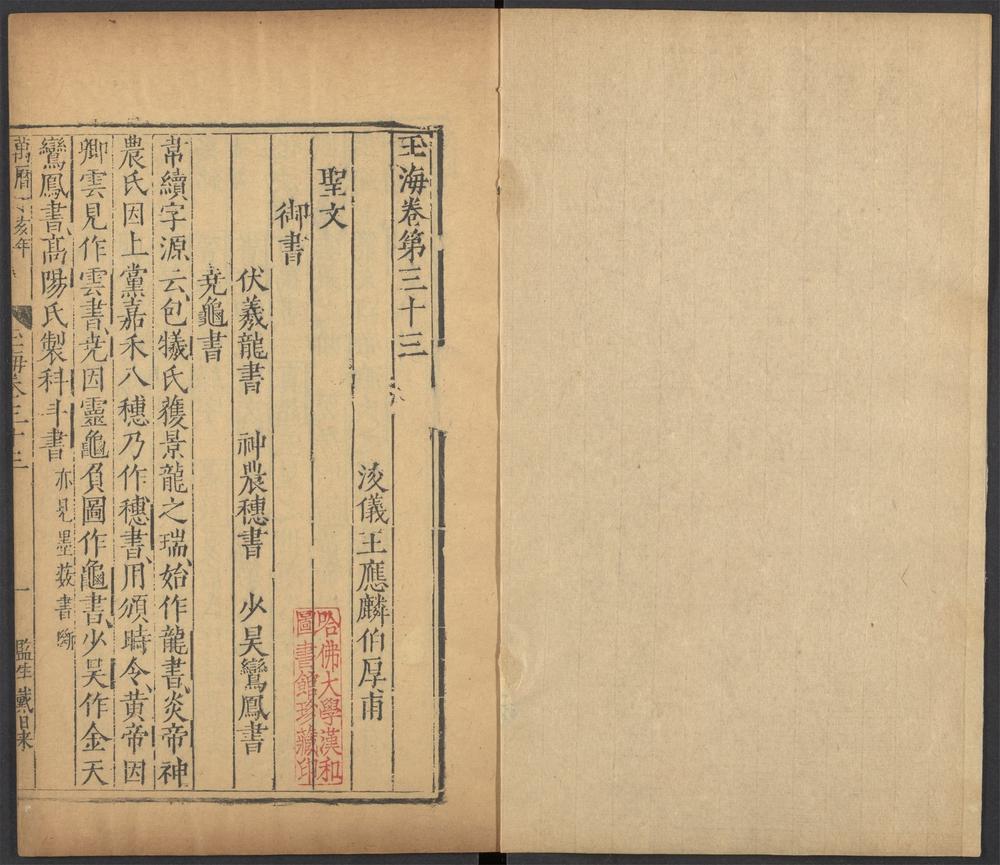 玉海卷第三十三
浚儀王應麟伯厚甫
聖文
御書
伏羲龍書 神農穗書 少昊鸞鳳書
堯龜書
韋續字源云包犧氏獲景龍之瑞始作龍書炎帝神
農氏因上黨嘉禾八穗乃作穗書用頒時令黃帝因
卿雲見作雲書堯因靈龜負圖作龜書少昊作金天
鸞鳳書高陽氏製科斗書亦見墨藪書斷
萬曆 亥年
玉海卷三十三
一
監生戴
哈佛大學漢和
圖書館珍藏印